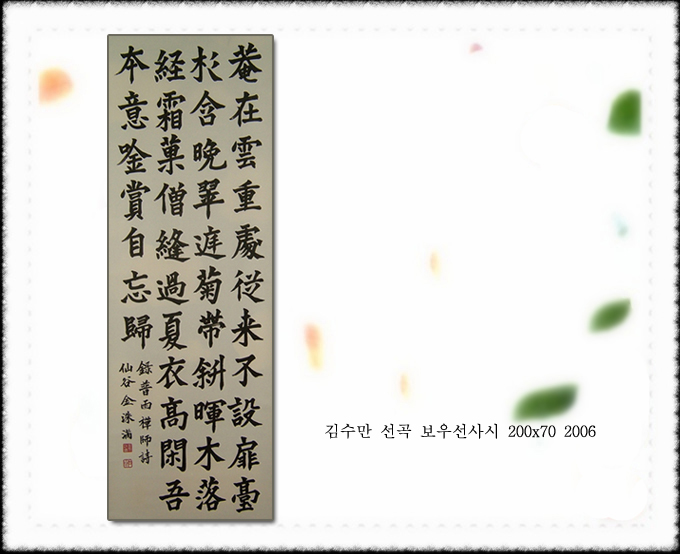 菴在雲重處従来不設扉臺
杉含晩翠庭菊帶斜暉木落
経霜菓僧縫過夏衣高閑吾
本意唫賞自忘歸
錄普雨禪師詩
仙谷 金洙滿
김수만 선곡 보우선사시 200x70 2006